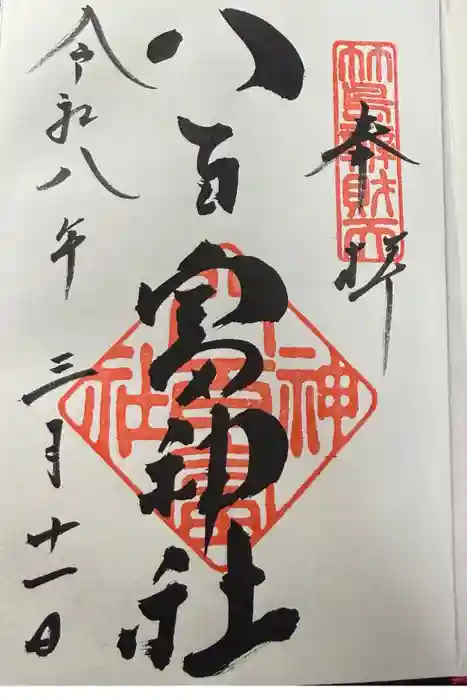 奉拝
竹島辨財天
八百富神社
八百富神社
令和八年
三月十一日